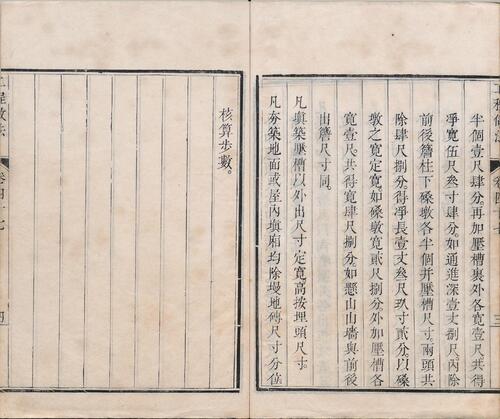 半個壹尺肆分。再加壓槽裏外各寬壹尺。共得
凈寬伍尺叁寸肆分。如通進深壹丈捌尺。內除
前後簷柱下磉墩各半個并壓槽尺寸。兩頭共
除肆尺捌分。得凈長壹丈叁尺玖寸貳分。以磉
墩之寬定寬。如磉墩寬貳尺捌分。外加壓槽各
寬壹尺。共得寬肆尺捌分。如懸山山牆與前後
出簷尺寸同。
凡填築壓槽以外出尺寸定寬。高按埋頭尺寸。
凡夯築地面或屋內填廂。均除墁地磚尺寸分位
核算步數。
卷四十七
四
三